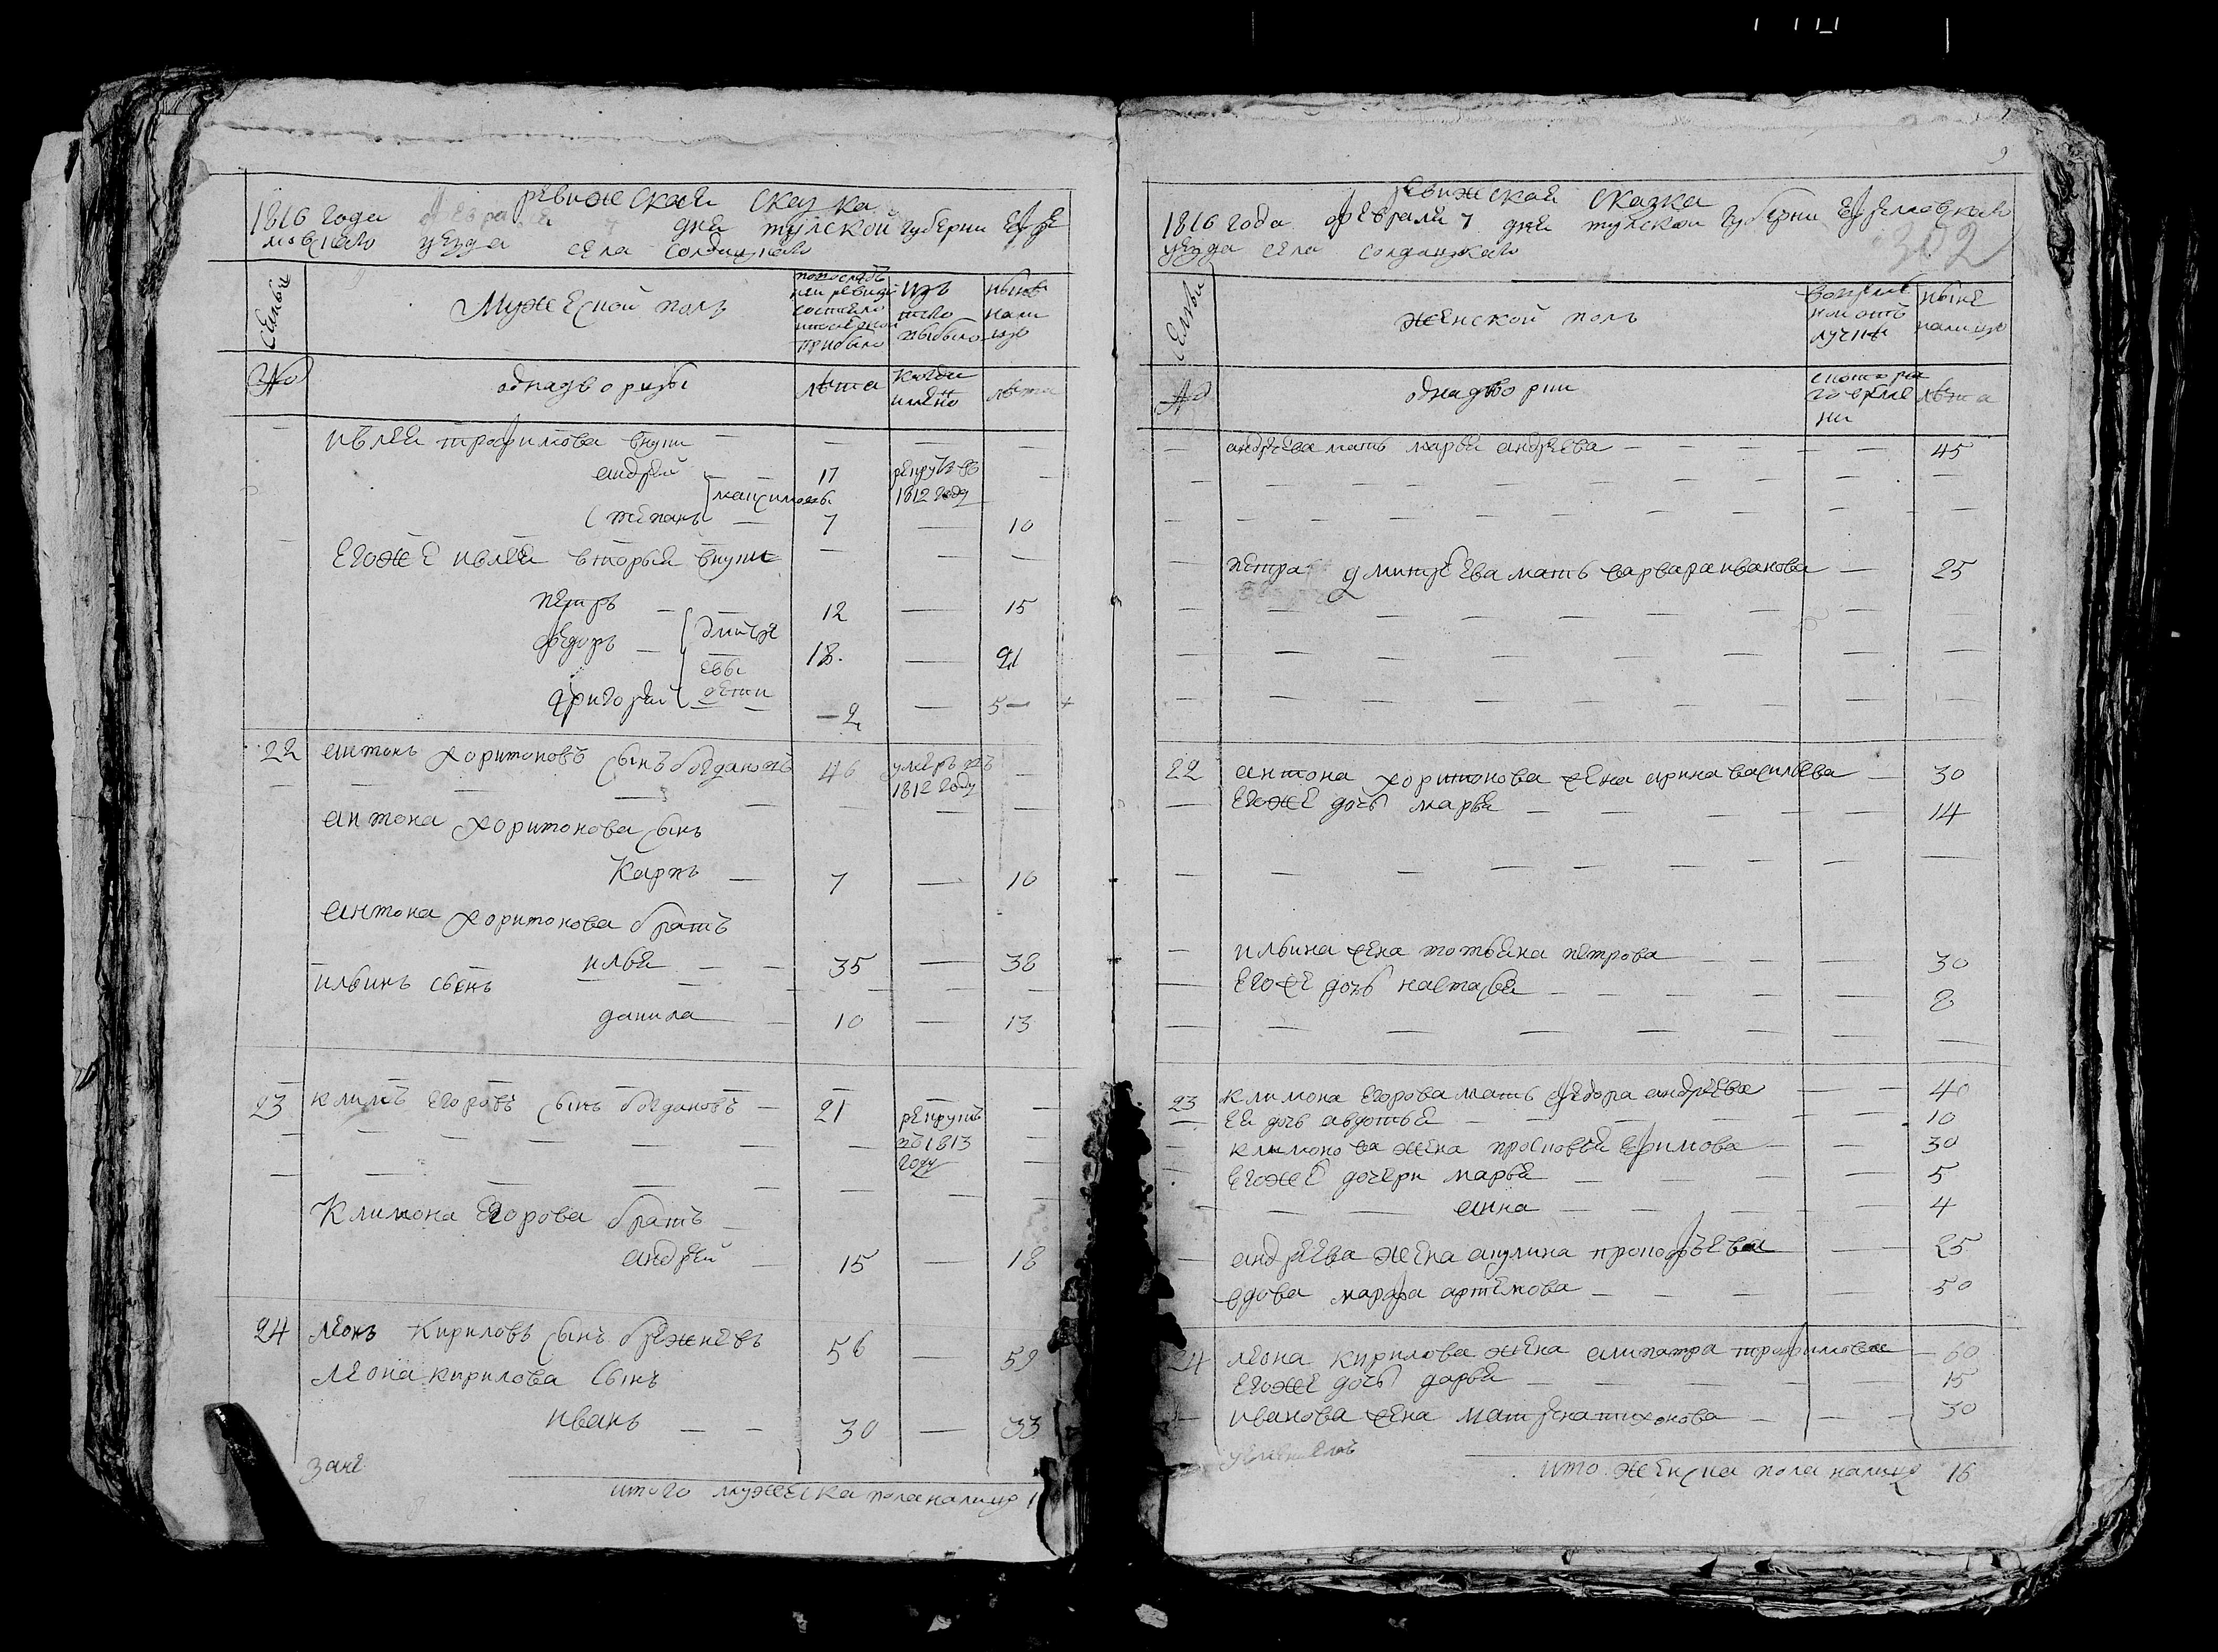 ревижская скаска
1816 года февраля 7 дня тулской губерни ефре
мовскаго уезда села солдацкаго
Семьи
Мужеской полъ
попослѣд
ней ревизи
состояло
прибыло
изъ
того
выбыло
нынѣ
нали
цо
№
однадворцы
лѣта
когда
имено
лѣта
ивлея трофимова внуки
андрей 17 рекрут въ
максимовы 1812 году
степанъ 7 10
егоже ивлея вторыя внуки
петръ 12 15
федоръ дмитре 18 21
евы
григорей дети 2 5
22 антонъ харитоновъ сынъ богдановъ 46 умеръ въ
1812 году
антона харитонова сынъ
карпъ 7 10
антона харитонова братъ
илья 35 38
ильинъ сынъ
данила 10 13
23 климъ егоровъ сынъ богдановъ 21 рекрутъ
въ 1813
году
климона егорова братъ
андрей 15 18
24 леонъ кириловъ сынъ брежневъ 56 59
леона кирилова сынъ
иванъ 30 33
итого мужеска пола налицо 1
9
ревижская сказка
1816 года февраля 7 дня тулской губерни ефремовскаго
302
уезда села солдацкаго
Семьи
женской полъ
во време
ной отъ
лучки
ныне
налицо
№
однадворки
с котора
го време
ни
лѣта
андреева мать марья андреева 45
петра дмитреева мать варвара иванова 25
22 антона харитонова жена арина васильева 30
егоже дочь марья 14
ильина жена татьяна петрова 30
егоже дочь настасья 8
23 климона егорова мать федора андреева 40
ея дочь авдотья 10
климонова жена просковья ефимова 30
егоже дочери марья 5
анна 4
андреева жена акулина прокофьева 25
вдова марфа артемова 50
24 леона кирилова жена алипатра трофимова 60
егоже дочь дарья 15
иванова жена матрена тихонова 30
итого женска пола налицо 16